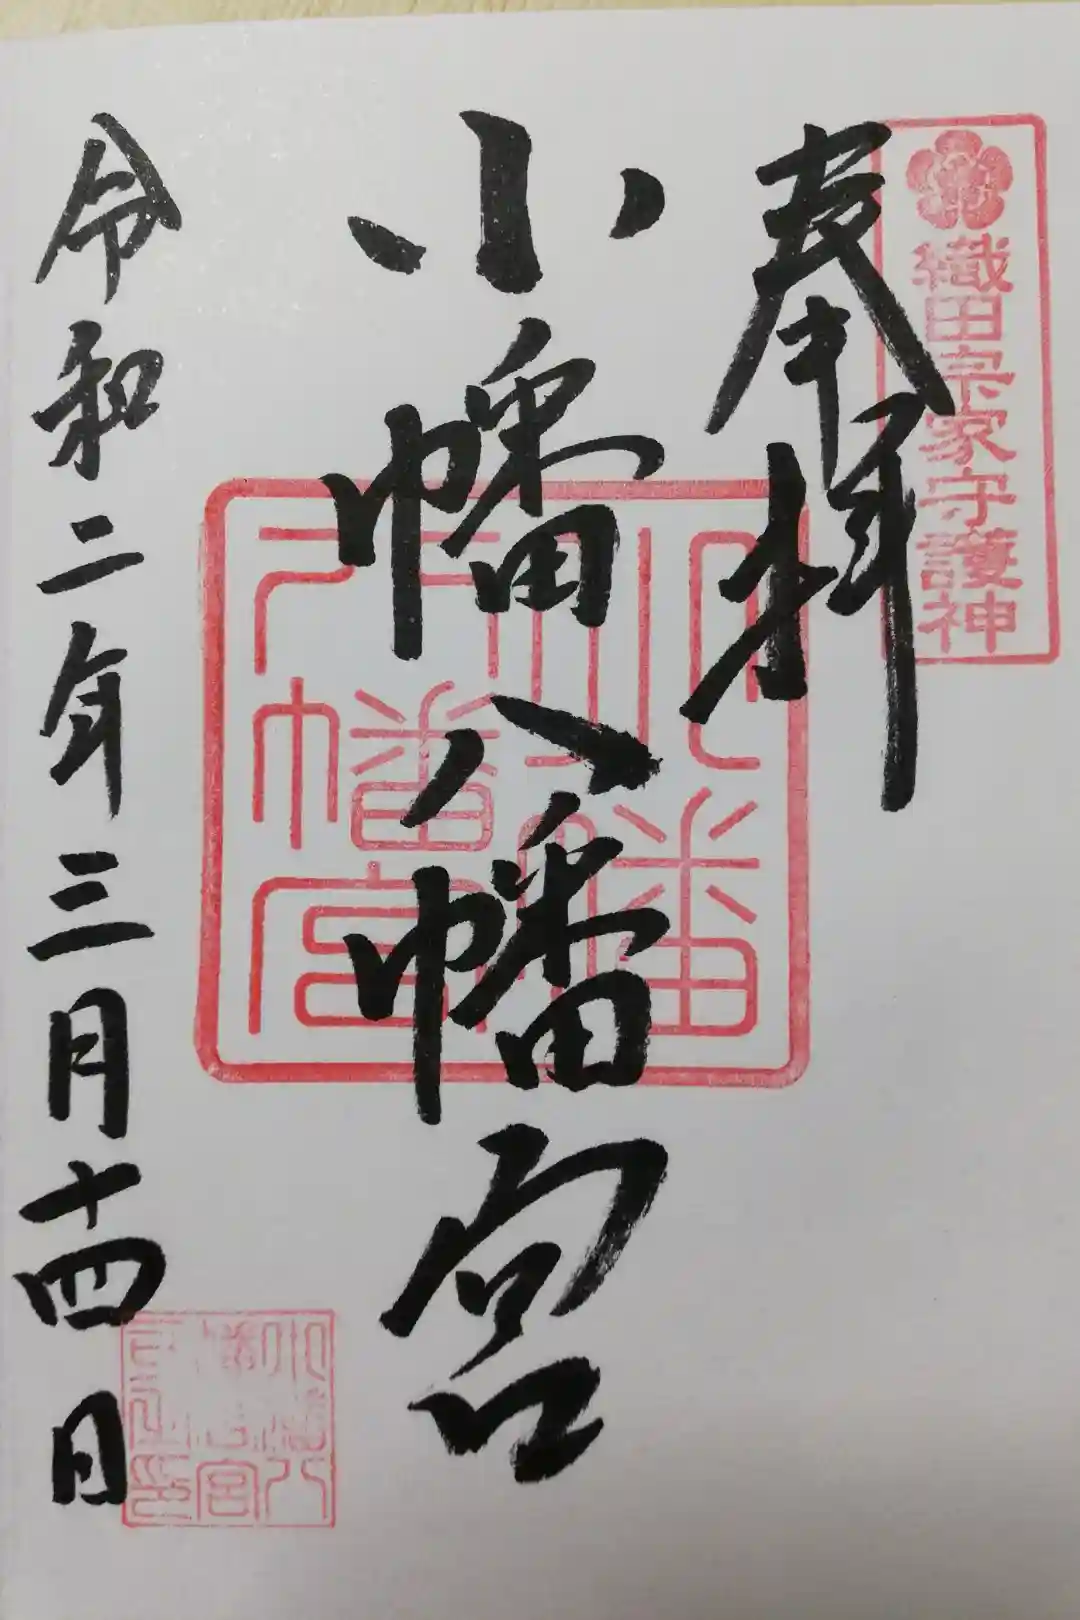 織田宗家守護神
奉拝
小幡八幡宮
小幡
八幡宮
令和二年三月十四日
小幡八
幡宮